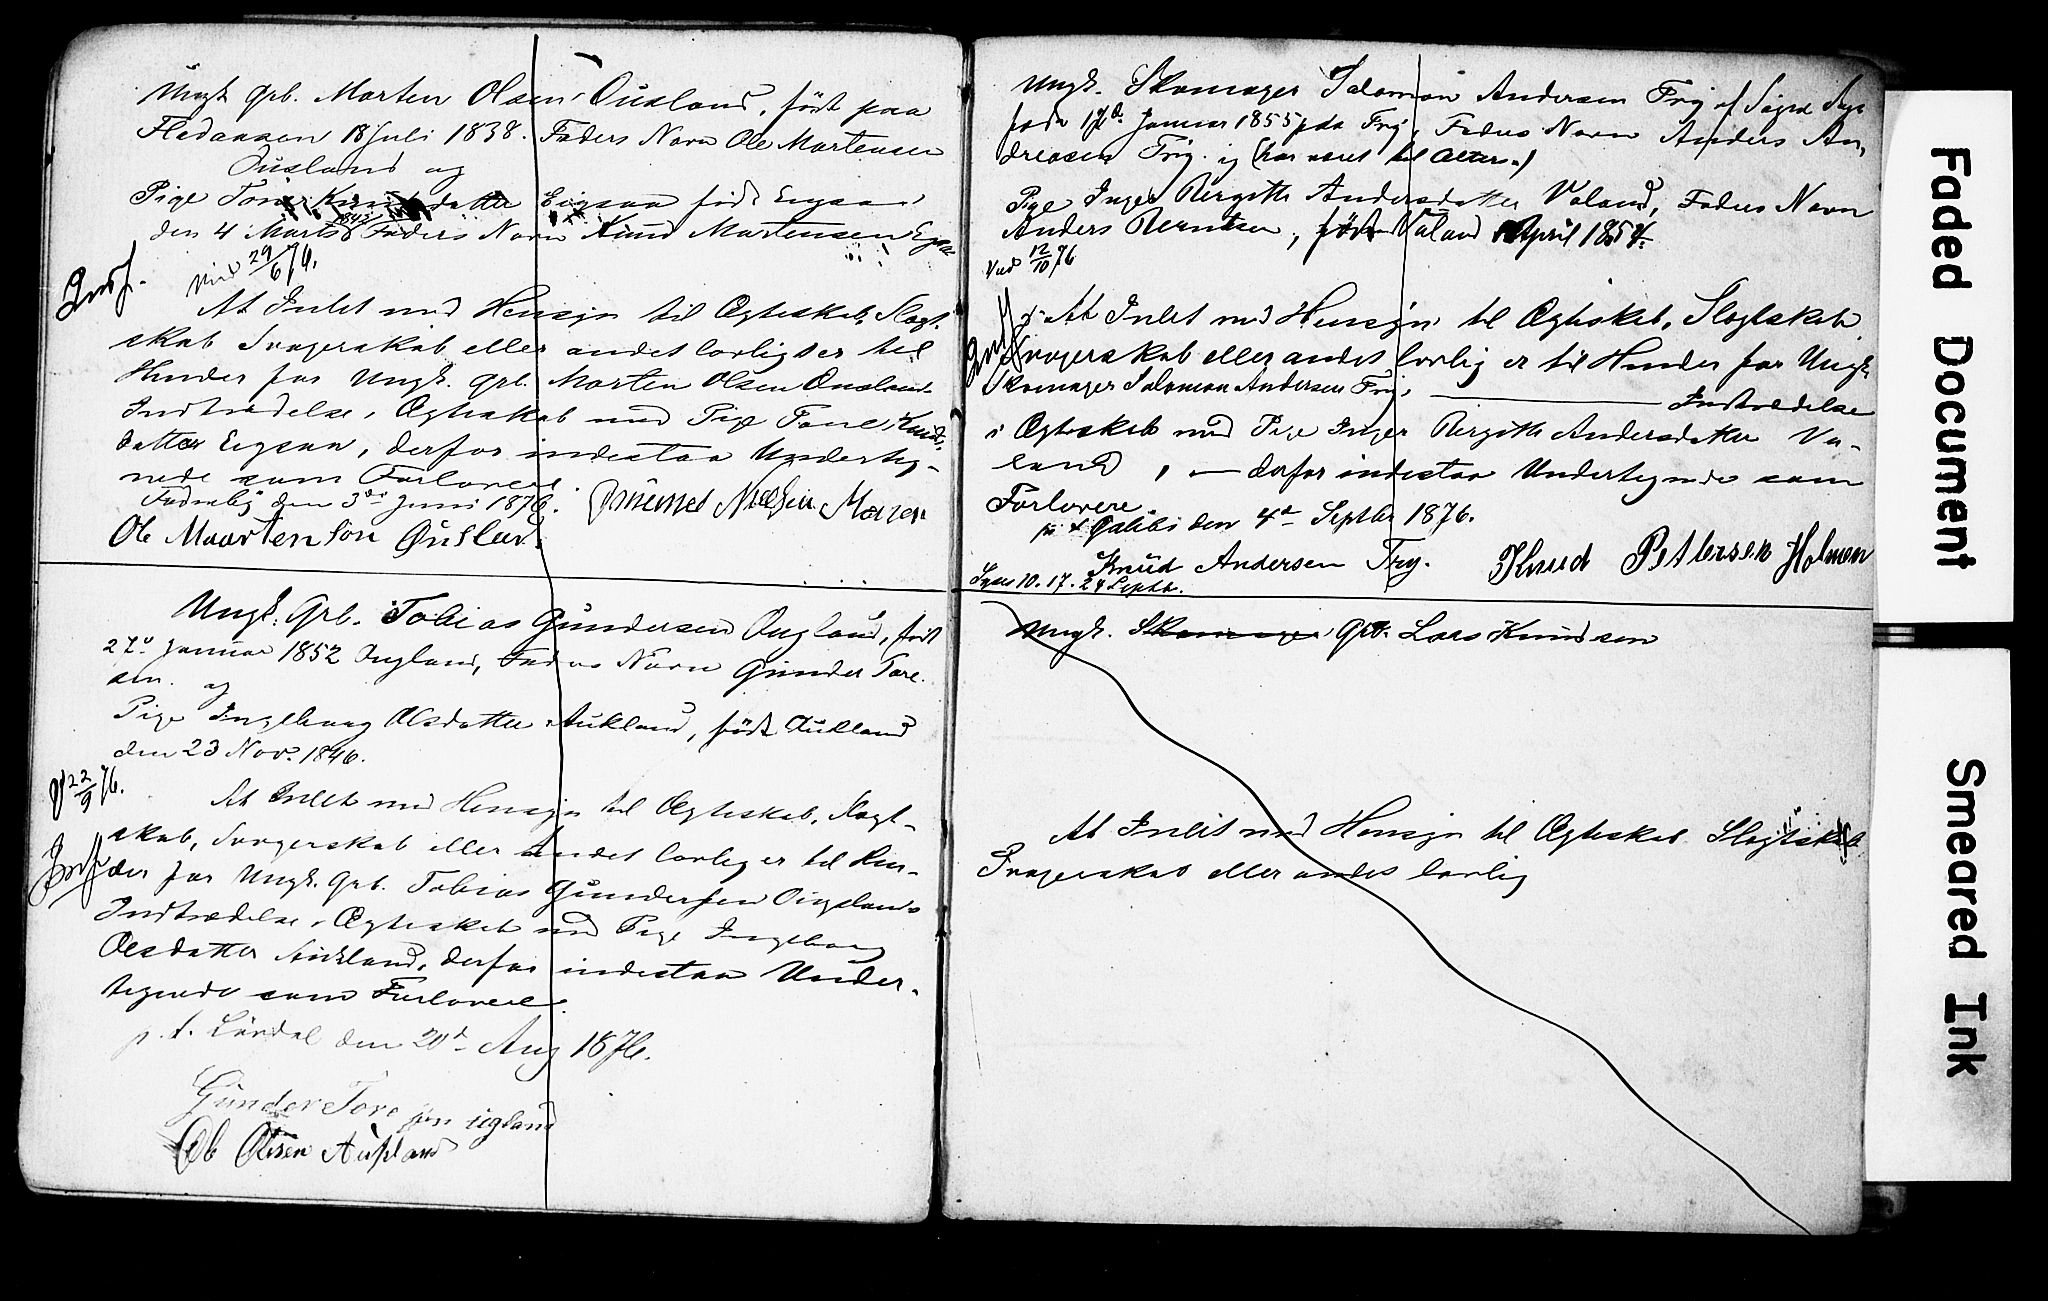 Ungk. Grb. Morten Olsen Ousland, født paa
Fledaasen 18 Juli 1838. Faders Navn Ole Martensen
Ousland og
Pige Tone Knudsdatter Eigsaa født Eigsaa
den 4 Marts 1843 Faders Navn Knud Martensen Egsaa
Viet 29/6 76.
Indf.
At Intet med Hensyn til Ægteskab, Slægt-
skab Svogerskab eller andet lovligt er til
Hinder for Ungk. Grb. Morten Olsen Ousland
Indtrædelse i Ægteskab med Pige Tone Knuds-
datter Eigsaa, derfor indestaa Underteg-
nede som Forlovere.
den 3de Juni 1876.
Ole Maarten søn Øusland
Ungk. Grb. Tobias Gundersen Ougland, født
27de Januar 1852 Ougland, Faders Navn Gunder Tore-
sen. og
Pige Ingeborg Olsdatter Aukland, født Aukland
den 23 Novr. 1846.
V 22/9 76.
At Intet med Hensyn til Ægteskab, Slægt-
skab, Svogerskab eller andet lovlig er til Hin-
Indf der for Ungk. Grb. Tobias Gundersen Ougland
Indtrædelse i Ægteskab med Pige Ingeborg
Olsdatter Aukland, derfor indestaa Under-
tegnede som Forlovere.
p. t. Lårdal den 20de Aug 1876.
Gunder Tore sen ugland
Ole Olesen Aukland
Ungk. Skomager Salomon Andersen Frÿ af Sogne
føde 17de Januar 1855 paa Frÿ, Faders Navn Anders An-
dreasen Frÿ. og (har været til Alters)
Pige Inger Bergitte Andersdatter Valand, Faders Navn
Anders Berntsen, født Valand April 1854.
Viet 12/10 76
Indf
At Intet med Hensyn til Ægteskab, Slægtskab
Svogerskab eller andet lovlig er til Hinder for Ungk.
Skomager Salomon Andersen Frÿ, Indtrædelse
i Ægteskab med Pige Inger Bergitte Andersdatter Va-
land, derfor indestaa Undertegnede som
Forlovere.
den 4de Septbr 1876.
Knud Andersen Frÿ. Knud Pettersen Holmen
10. 17. 24 Septbr.
Ungk. Skomager Grb. Lars Knudsen
At Intet med Hensyn til Ægteskab Slægtskab
Svogerskab eller andet lovlig
Faded Document
Smeared Ink